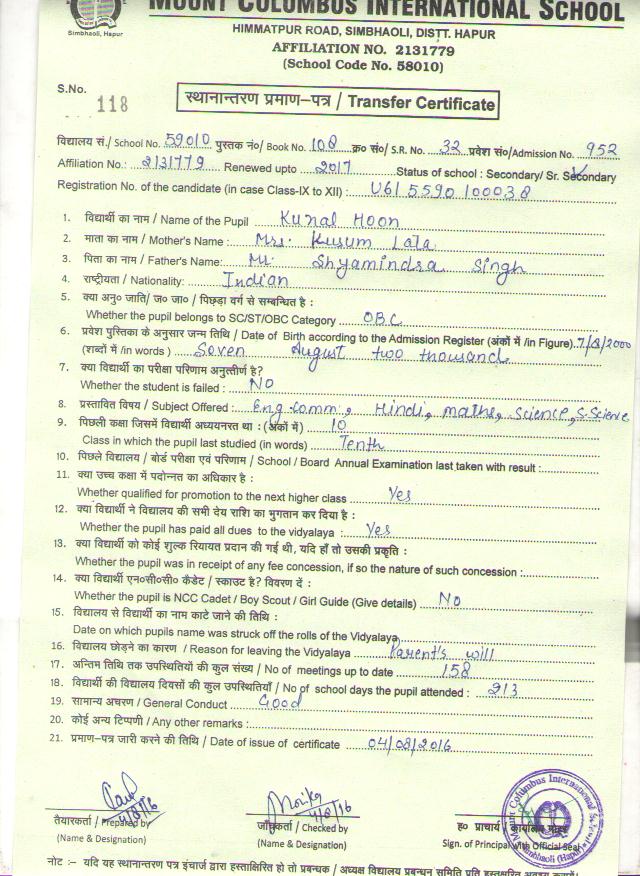 Simbhaoli, Hapur
MOUNT COLUMBUS INTERNATIONAL SCHOOL
HIMMATPUR ROAD, SIMBHAOLI, DISTT. HAPUR
AFFILIATION NO. 2131779
(School Code No. 58010)
S.No.
118
स्थानान्तरण प्रमाण-पत्र / Transfer Certificate
विद्यालय सं./ School No. 59010 पुस्तक नं०/ Book No. 108 क्र० सं०/ S.R. No. 32 प्रवेश सं०/Admission No. 952
Affiliation No.: 2131779 Renewed upto 2017 Status of school : Secondary/ Sr. Secondary
Registration No. of the candidate (in case Class-IX to XII) : U615590100038
1. विद्यार्थी का नाम / Name of the Pupil Kunal Hoon
2. माता का नाम / Mother's Name : Mrs. Kusum Lata
3. पिता का नाम / Father's Name: Mr. Shyamindra Singh
4. राष्ट्रीयता / Nationality: Indian
5. क्या अनु० जाति/ ज० जा० / पिछड़ा वर्ग से सम्बन्धित है :
Whether the pupil belongs to SC/ST/OBC Category OBC
6. प्रवेश पुस्तिका के अनुसार जन्म तिथि / Date of Birth according to the Admission Register (अंकों में /in Figure). 7/8/2000
(शब्दों में /in words) Seven August two thousand
7. क्या विद्यार्थी का परीक्षा परिणाम अनुत्तीर्ण है?
Whether the student is failed : NO
8. प्रस्तावित विषय / Subject Offered : Eng.comm, Hindi, maths, Science, S.Science
9. पिछली कक्षा जिसमें विद्यार्थी अध्ययनरत था : (अंकों में) 10
Class in which the pupil last studied (in words) Tenth
10. पिछले विद्यालय / बोर्ड परीक्षा एवं परिणाम / School / Board Annual Examination last taken with result :
11. क्या उच्च कक्षा में पदोन्नत का अधिकार है :
Whether qualified for promotion to the next higher class Yes
12. क्या विद्यार्थी ने विद्यालय की सभी देय राशि का भुगतान कर दिया है :
Whether the pupil has paid all dues to the vidyalaya : Yes
13. क्या विद्यार्थी को कोई शुल्क रियायत प्रदान की गई थी, यदि हाँ तो उसकी प्रकृति :
Whether the pupil was in receipt of any fee concession, if so the nature of such concession :
14. क्या विद्यार्थी एन०सी०सी० कैडेट / स्काउट है? विवरण दें :
Whether the pupil is NCC Cadet / Boy Scout / Girl Guide (Give details) NO
15. विद्यालय से विद्यार्थी का नाम काटे जाने की तिथि :
Date on which pupils name was struck off the rolls of the Vidyalaya
16. विद्यालय छोड़ने का कारण / Reason for leaving the Vidyalaya Parent's will
17. अन्तिम तिथि तक उपस्थितियों की कुल संख्या / No of meetings up to date 158
18. विद्यार्थी की विद्यालय दिवसों की कुल उपस्थितियाँ / No of school days the pupil attended : 213
19. सामान्य अचरण / General Conduct Good
20. कोई अन्य टिप्पणी / Any other remarks :
21. प्रमाण-पत्र जारी करने की तिथि / Date of issue of certificate 04/08/2016
4/8/16 Monika 4/8/16
तैयारकर्ता / Prepared by जाँचकर्ता / Checked by ह० प्राचार्य कार्यालय मोहर
(Name & Designation) (Name & Designation) Sign. of Principal with Official Seal
Mount Columbus International School Simbhaoli (Hapur)
नोट :- यदि यह स्थानान्तरण पत्र इंचार्ज द्वारा हस्ताक्षरित हो तो प्रबन्धक / अध्यक्ष विद्यालय प्रबन्धन समिति प्रति हस्ताक्षरित